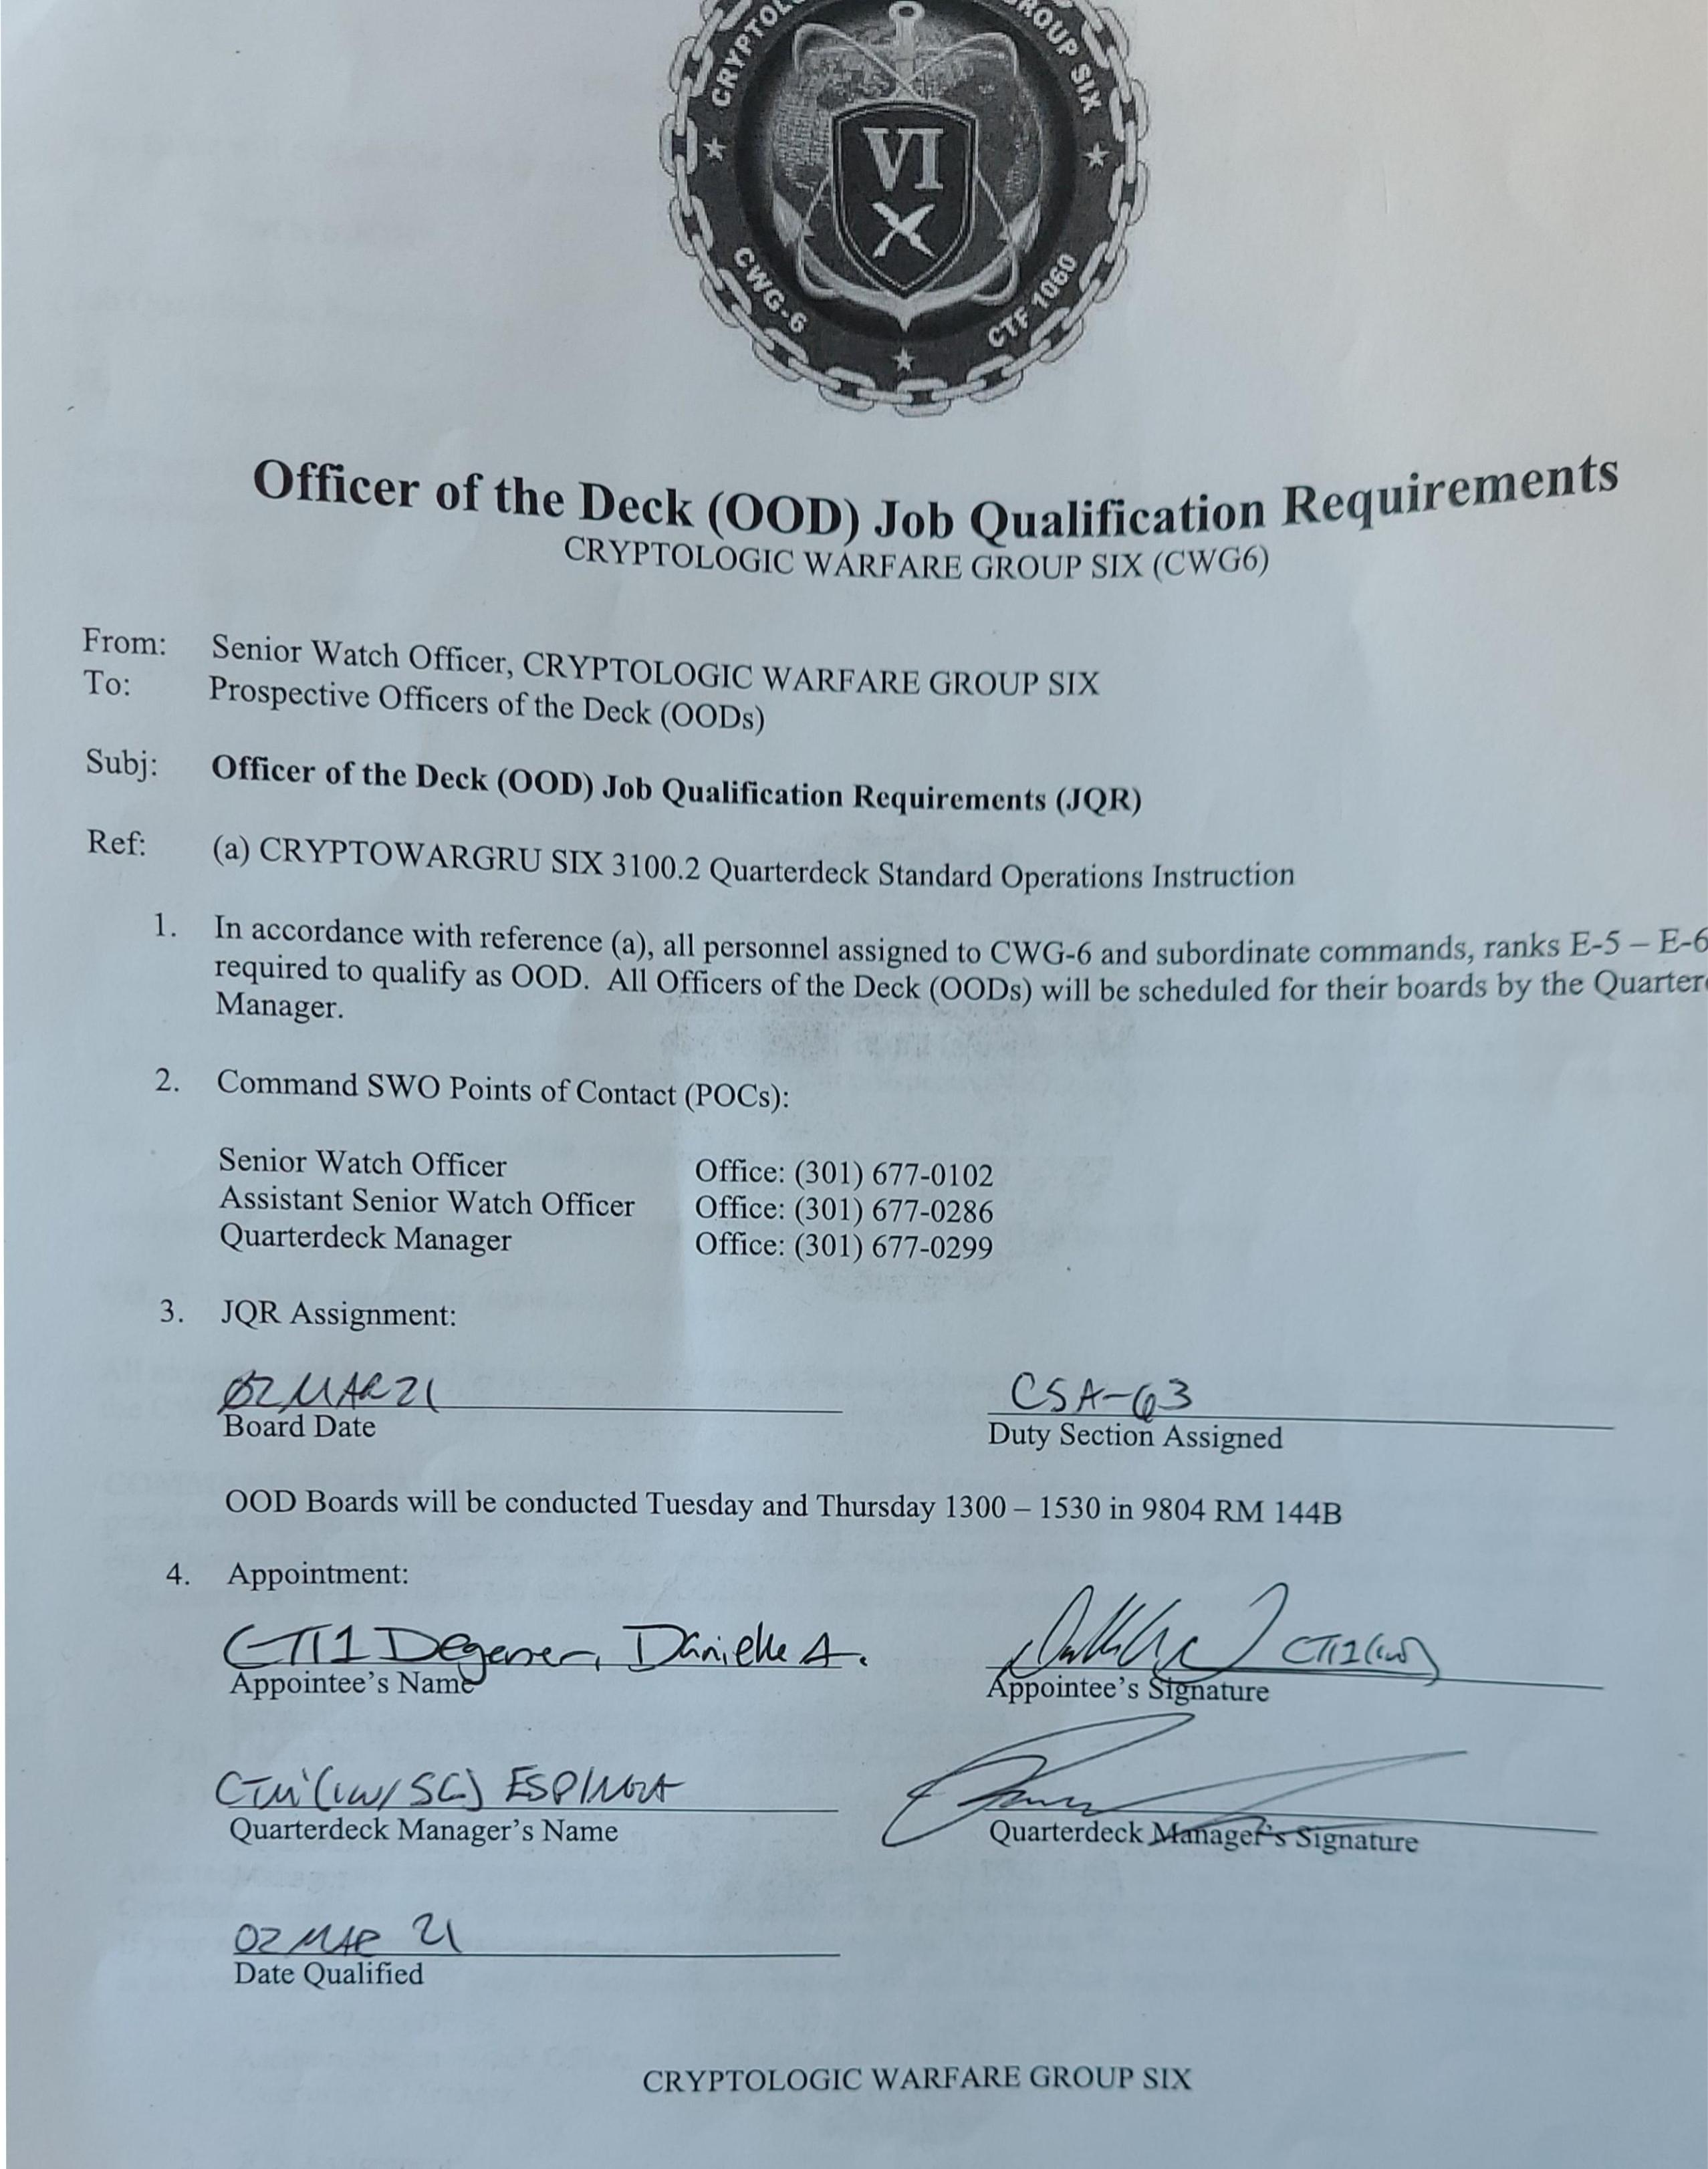 CRYPTOL
GROUP SIX
VI
CWG-6
CTF 1060
Officer of the Deck (OOD) Job Qualification Requirements
CRYPTOLOGIC WARFARE GROUP SIX (CWG6)
From: Senior Watch Officer, CRYPTOLOGIC WARFARE GROUP SIX
To: Prospective Officers of the Deck (OODs)
Subj: Officer of the Deck (OOD) Job Qualification Requirements (JQR)
Ref: (a) CRYPTOWARGRU SIX 3100.2 Quarterdeck Standard Operations Instruction
1. In accordance with reference (a), all personnel assigned to CWG-6 and subordinate commands, ranks E-5 – E-6
required to qualify as OOD. All Officers of the Deck (OODs) will be scheduled for their boards by the Quarter
Manager.
2. Command SWO Points of Contact (POCs):
Senior Watch Officer Office: (301) 677-0102
Assistant Senior Watch Officer Office: (301) 677-0286
Quarterdeck Manager Office: (301) 677-0299
3. JQR Assignment:
02 MAR 21 CSA-63
Board Date Duty Section Assigned
OOD Boards will be conducted Tuesday and Thursday 1300 – 1530 in 9804 RM 144B
4. Appointment:
CTI1 Degener, Danielle A. CTI1(IW)
Appointee's Name Appointee's Signature
(IW/SG) ESPINOZA
Quarterdeck Manager's Name Quarterdeck Manager's Signature
02 MAR 21
Date Qualified
CRYPTOLOGIC WARFARE GROUP SIX